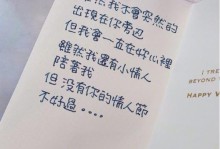 雖然我不會突然的
出現在你旁边
但我會一直在妳心裡
雖然我還有小情人
陪著我
但沒有你的情人節
不好過....
I TRE
BEYOND
HAPPY V